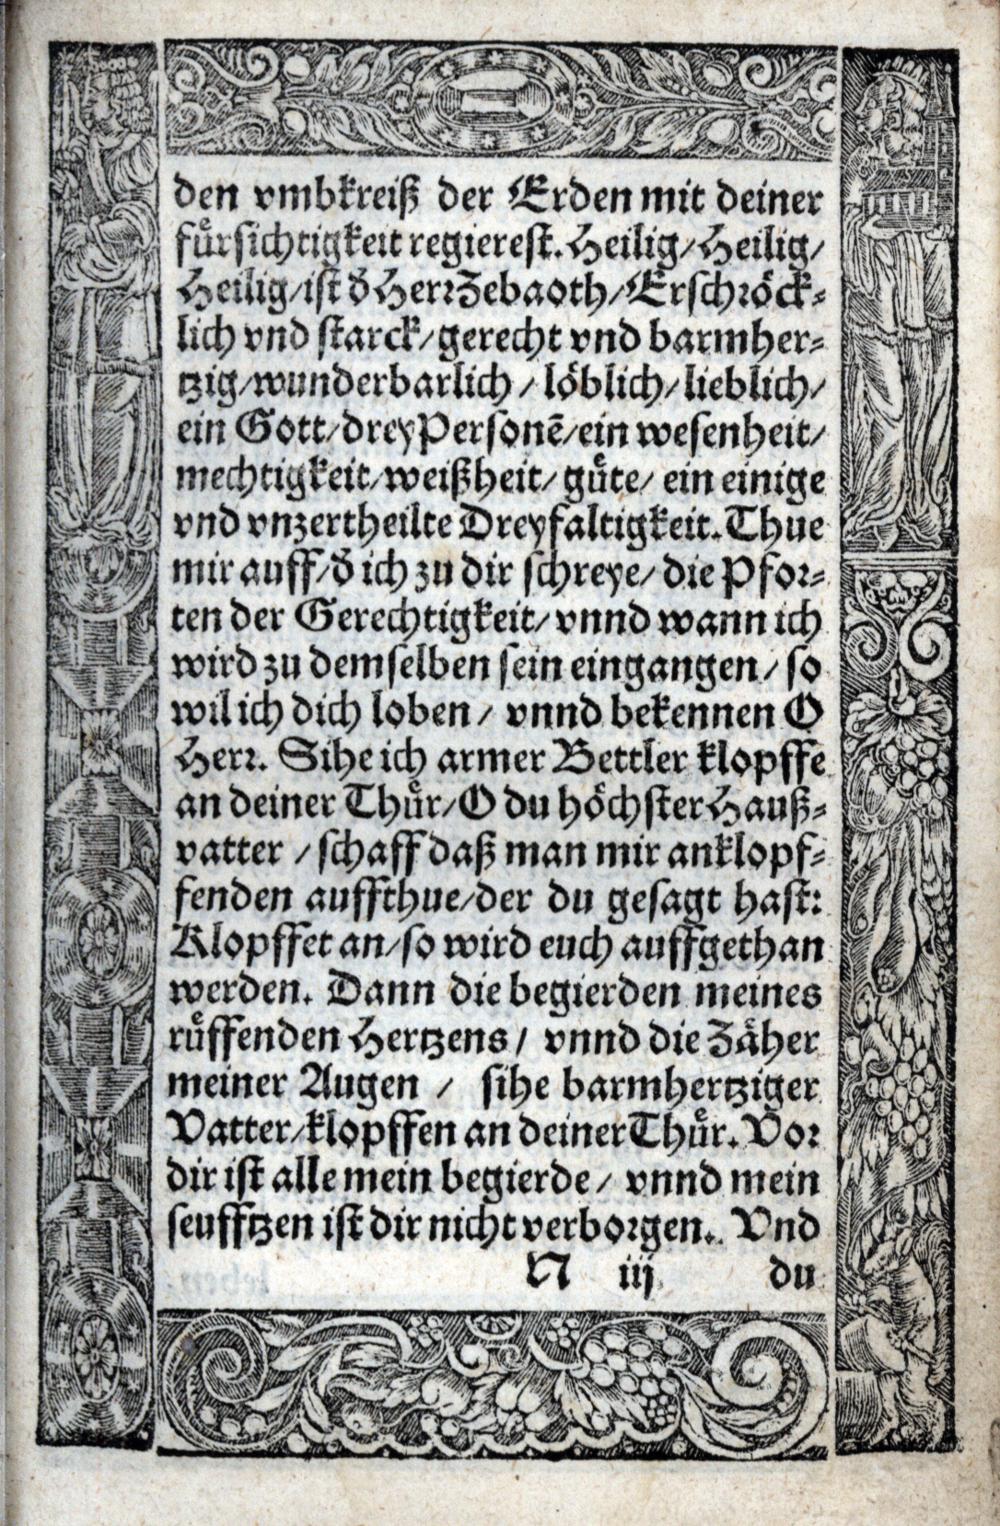 den vmbkreiß der Erden mit deiner
fuͤrsichtigkeit regierest. Heilig/Heilig/
Heilig/ist d̕ Herr Zebaoth/Erschroͤck⸗
lich vnd starck/gerecht vnd barmher⸗
tzig/wunderbarlich / loͤblich/lieblich/
ein Gott/drey Personē/ein wesenheit/
mechtigkeit/weißheit/ guͤte/ ein einige
vnd vnzertheilte Dreyfaltigkeit. Thue
mir auff/d̕ ich zu dir schreye/ die Pfor⸗
ten der Gerechtigkeit/ vnnd wann ich
wird zu demselben sein eingangen / so
wil ich dich loben / vnnd bekennen O
Herr. Sihe ich armer Bettler klopffe
an deiner Thuͤr/O du hoͤchster Hauß⸗
vatter / schaff daß man mir anklopf⸗
fenden auffthue/der du gesagt hast:
Klopffet an/so wird euch auffgethan
werden. Dann die begierden meines
ruͤffenden Hertzens / vnnd die Zaͤher
meiner Augen / sihe barmhertziger
Vatter/klopffen an deiner Thuͤr. Vor
dir ist alle mein begierde / vnnd mein
seufftzen ist dir nicht verborgen. Vnd
N iij du